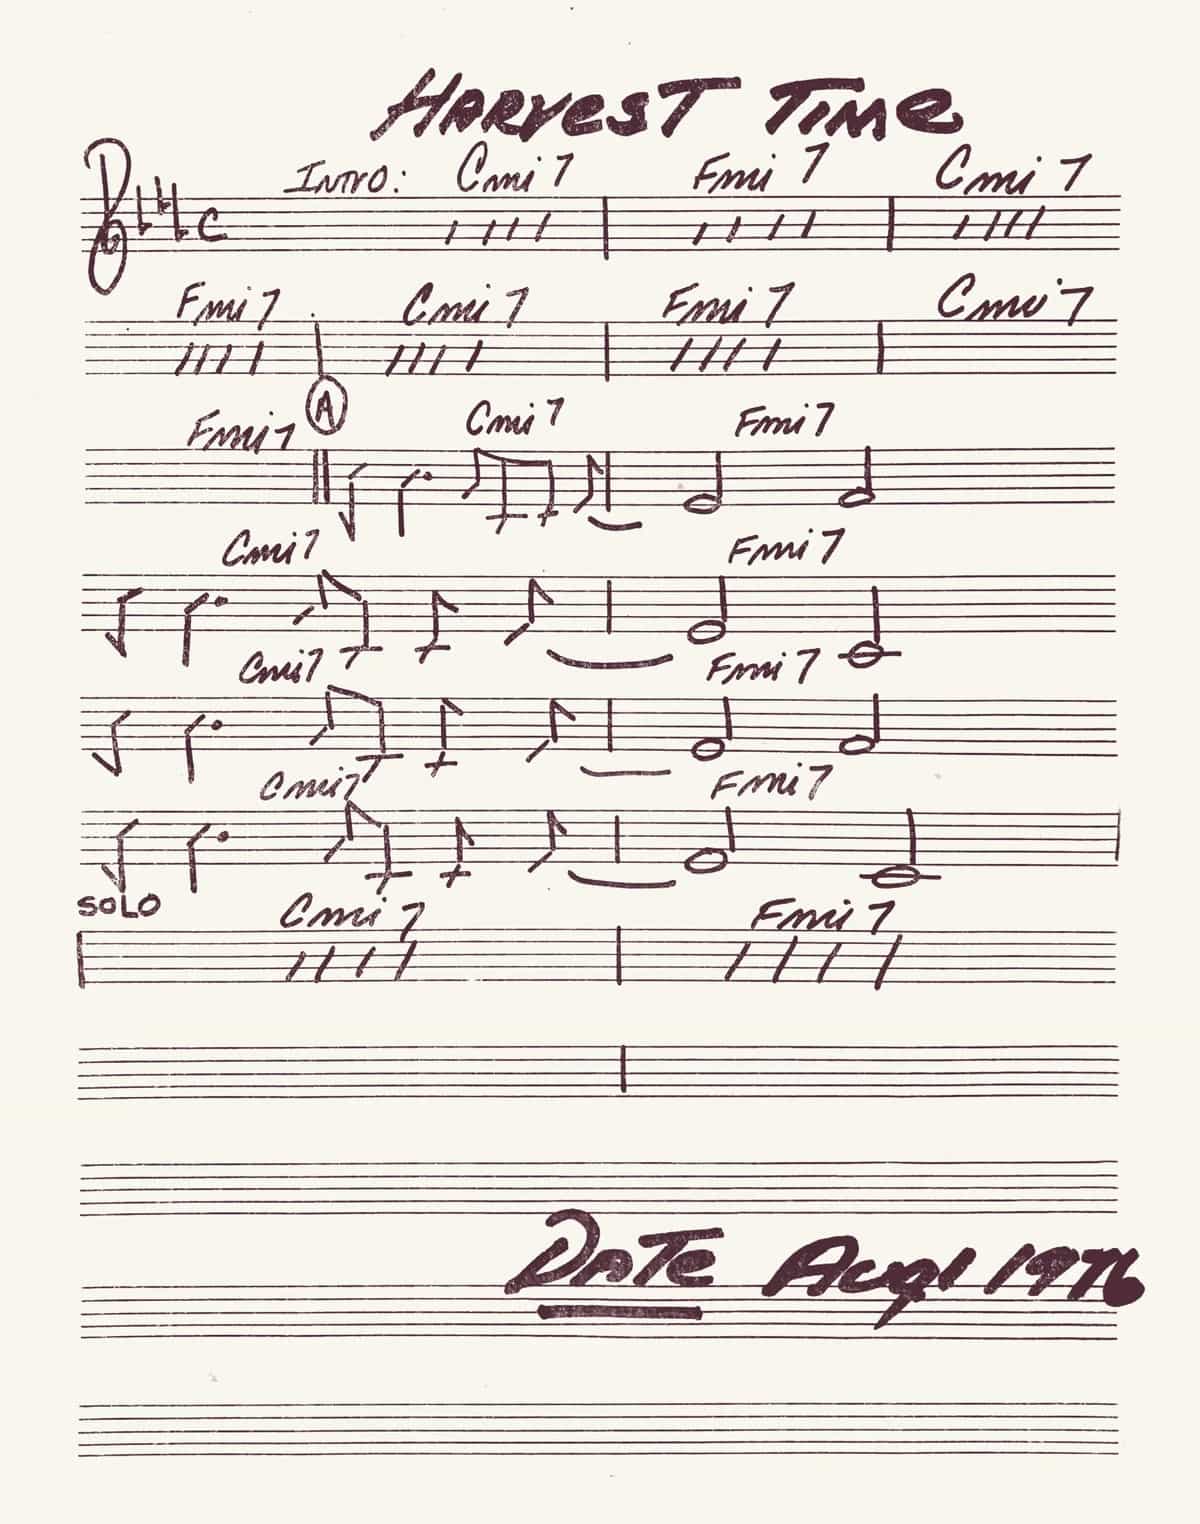 Harvest Time
Intro: Cmi7 Fmi7 Cmi7
Fmi7 Cmi7 Fmi7 Cmi7
A
Fmi7 Cmi7 Fmi7
Cmi7 Fmi7
Cmi7 Fmi7
Cmi7 Fmi7
SOLO Cmi7 Fmi7
Date Aug 1 1976